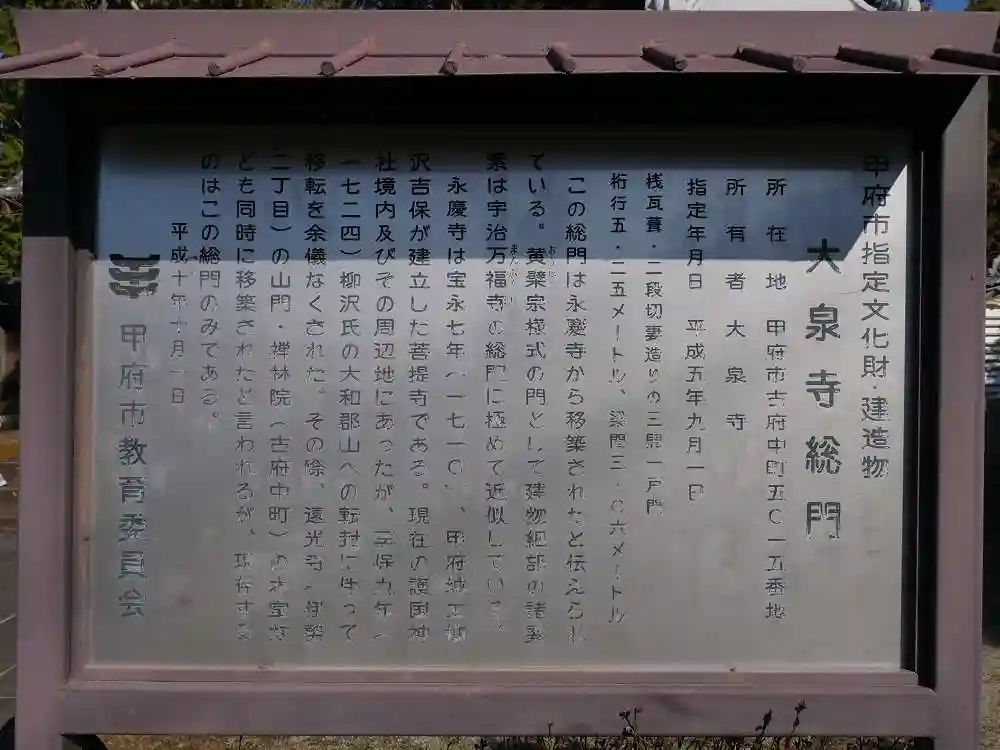 甲府市指定文化財・建造物
大泉寺総門
所在地 甲府市古府中町五〇一五番地
所有者 大泉寺
指定年月日 平成五年九月一日
桟瓦葺・二段切妻造りの三間一戸門
桁行五・二五メートル、梁間三・〇六メートル
この総門は永慶寺から移築されたと伝えられ
ている。黄檗宗様式の門として建物細部の諸要
素は宇治万福寺の総門に極めて近似している。
永慶寺は宝永七年(一七一〇)、甲府城主柳
沢吉保が建立した菩提寺である。現在の護国神
社境内及びその周辺地にあったが、享保九年(
一七二四)柳沢氏の大和郡山への転封に伴って
移転を余儀なくされた。その際、遠光寺(伊勢
二丁目)の山門・禅林院(古府中町)の本堂な
ども同時に移築されたと言われるが、現存する
のはこの総門のみである。
平成十年十月一日
甲府市教育委員会